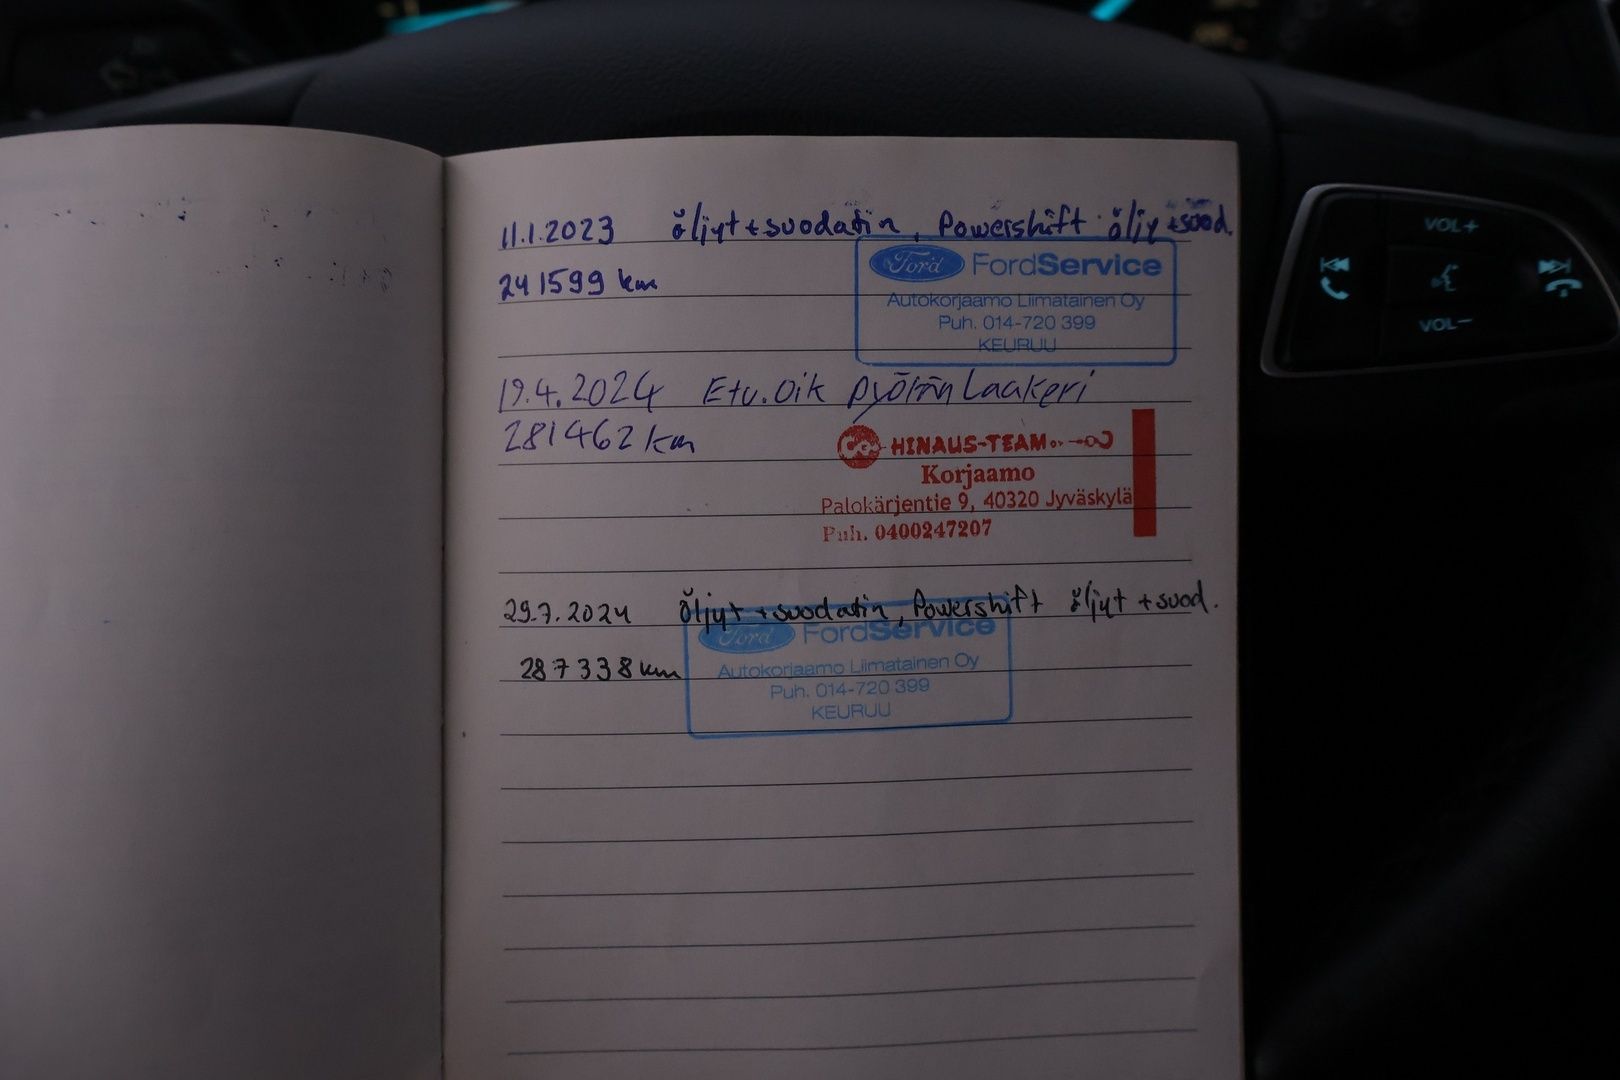 11.1.2023 öljyt+suodatin, Powershift öljy+suod.
241599 km
Ford FordService
Autokorjaamo Liimatainen Oy
Puh. 014-720 399
KEURUU
19.4.2024 Etu.Oik pyörän Laakeri
281462 km
HINAUS-TEAM OY
Korjaamo
Palokärjentie 9, 40320 Jyväskylä
Puh. 0400247207
29.7.2024 öljyt +suodatin, Powershift öljyt +suod.
287338 km
Ford FordService
Autokorjaamo Liimatainen Oy
Puh. 014-720 399
KEURUU
VOL+
VOL−